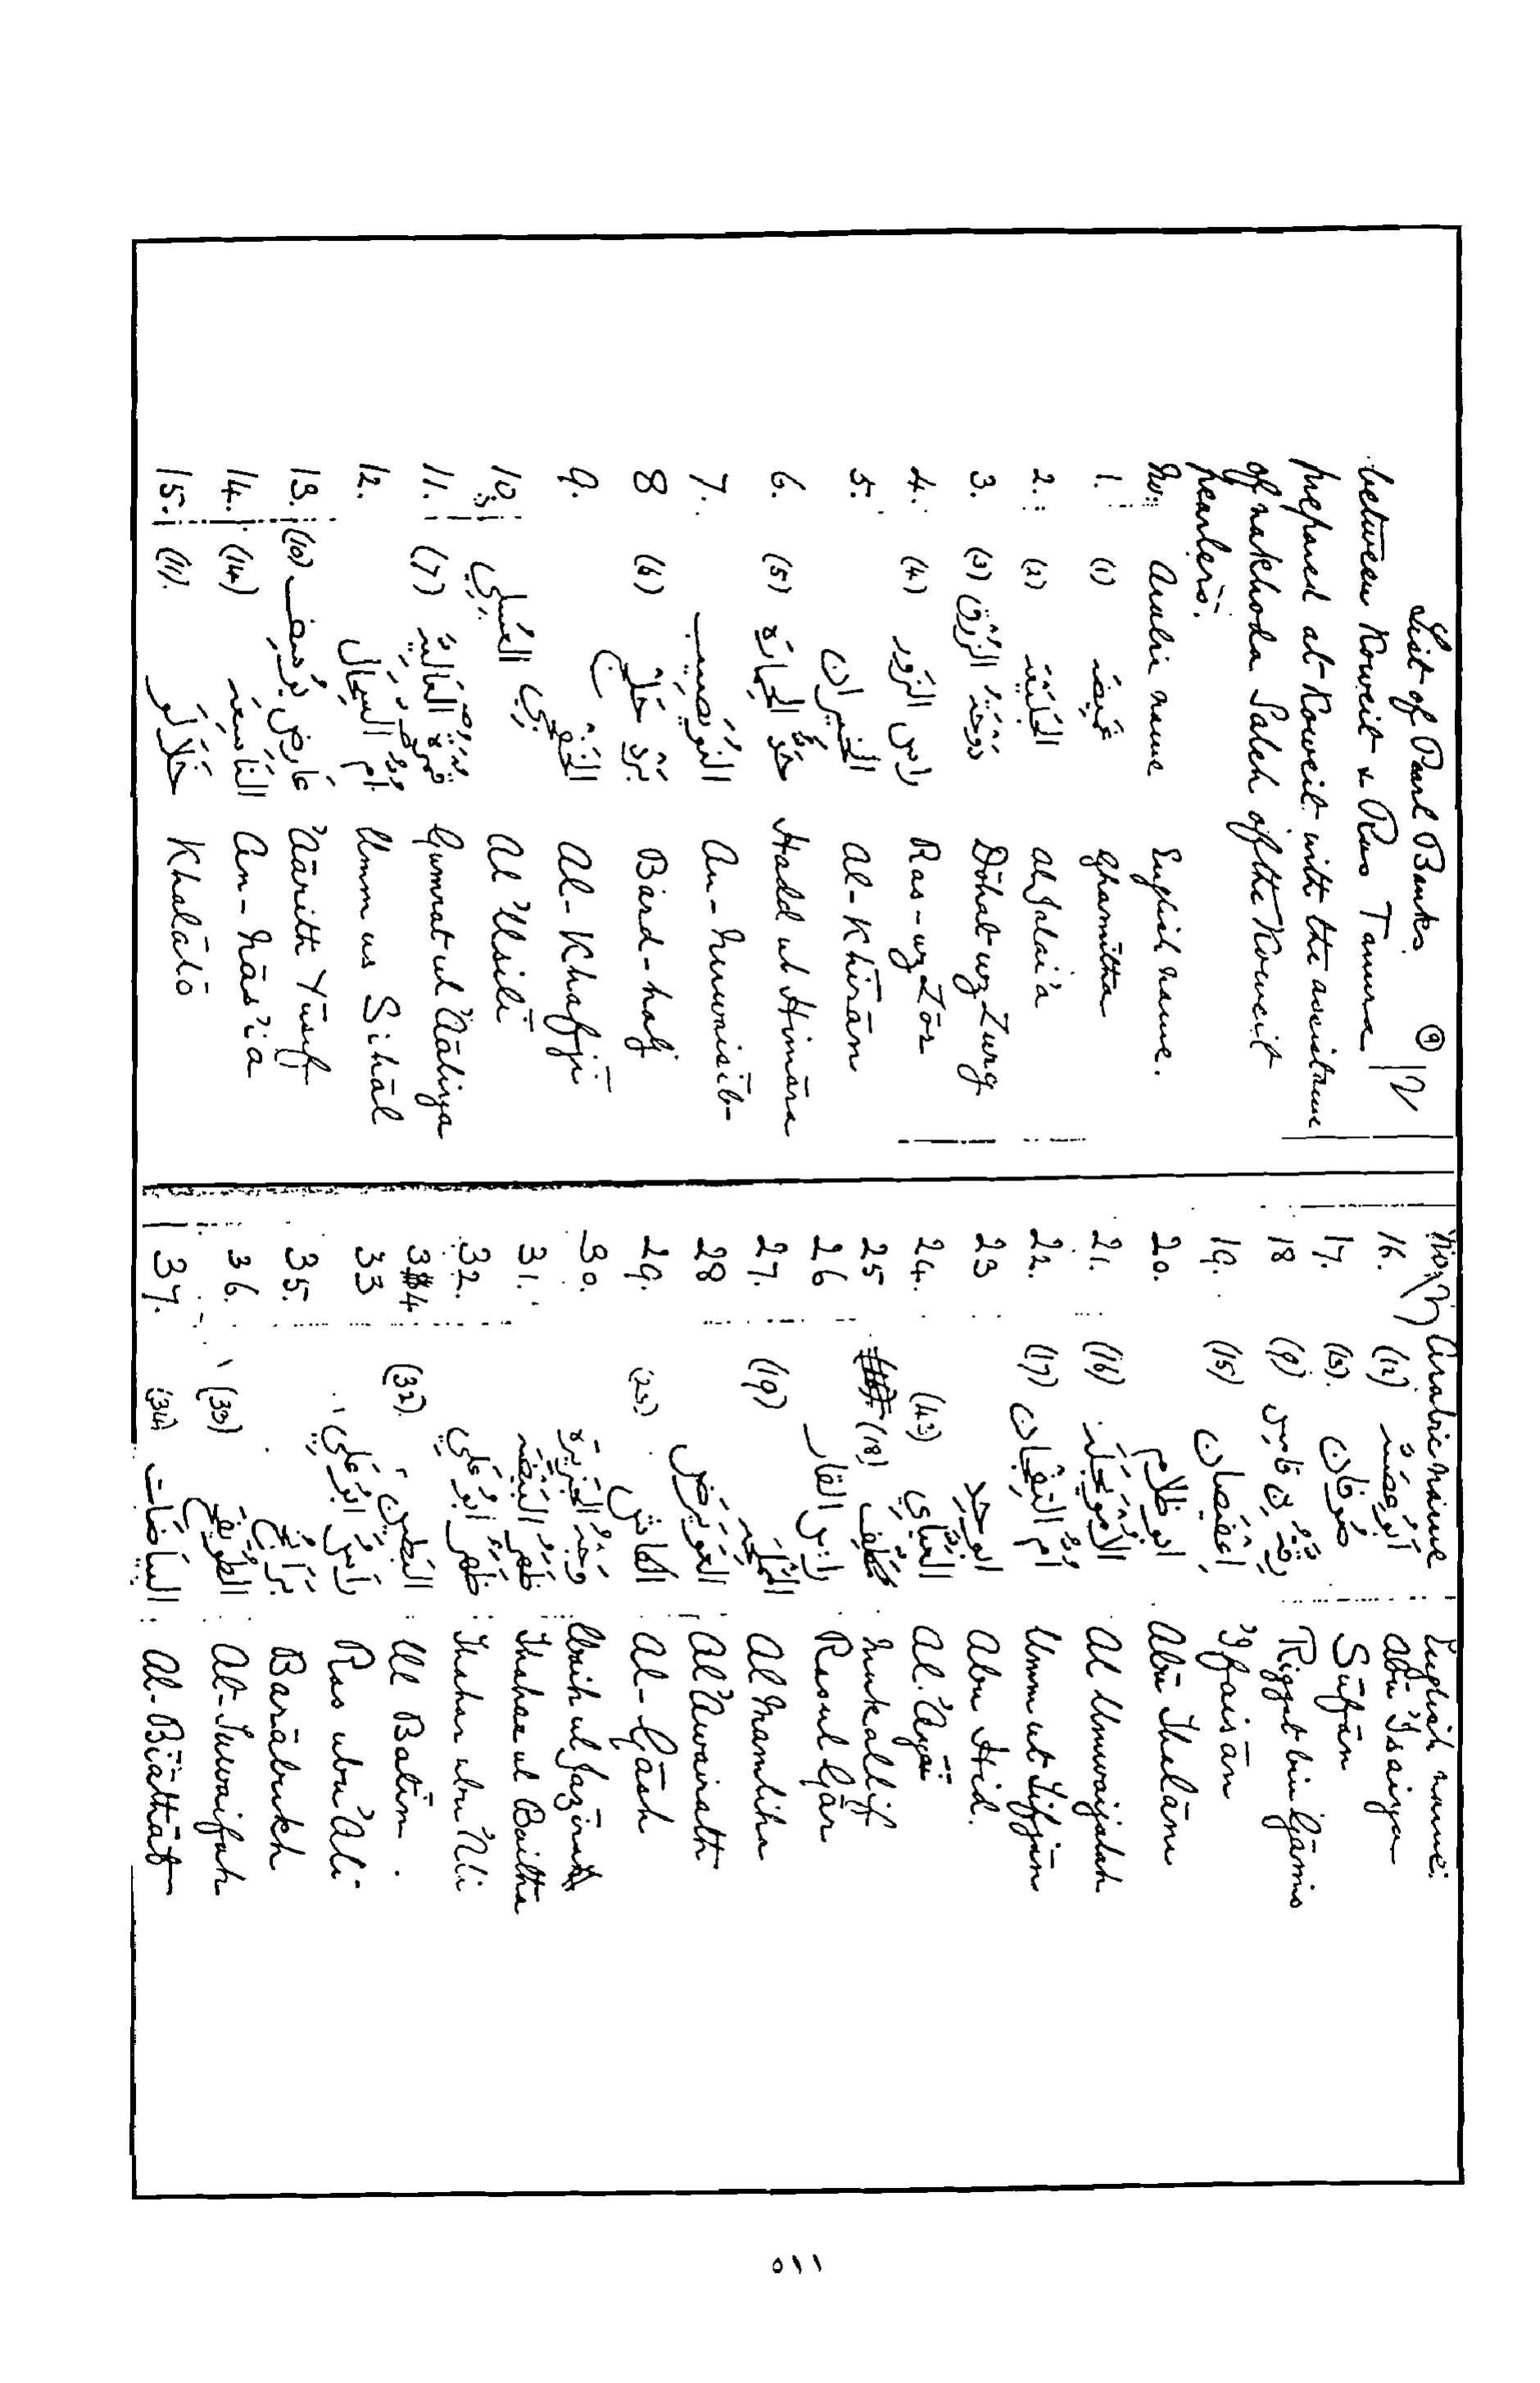 List of Pearl Banks. (9) 12
between Koweit & Ras Tanura
prepared at Koweit with the assistance
of nakhoda Saleh of the Koweit
pearlers.
No: Arabic name English name.
1. (1) غميضه Ghamitha
2. (2) الجليعه al Jalai'a
3. (3) دوحة الزرق Dōhat uz Zurg
4. (4) راس الزور Ras-uz Zōr
5. الخيران Al-Khīrān
6. (5) حد الحماره Hadd ul Himāra
7. النويصيب An-Nuwaisīb-
8 (6) برد حلج Bard-halj
9. الخفجي Al-Khafjī
10. العسيلي Al 'Usilī
11. (7) قمرة العاليه Gumrat ul 'Āāliya
12. ام السحال Umm us Sihāl
13. (10) عارض يوسف 'Āārith Yūsif
14. (14) الناسعه An-Nās'ia
15. (11). خلالو Khalālō
No: Arabic name English name:
16. (12) ابو عصيه Abū 'Isaiya
17. (13). صوفان Sūfān
18 (9) رقة بن قامس Riggat bin Gāmis
19. (15) اعفيصان 'Ifaisān
20. ابو ظلام Abū Thelām
21. (16) الامويجله Al Umwaijalah
22. (17) ام التيفجان Umm ut Tifjān
23 ابو حد Abu Hid.
24. (43) العياي Al.'Ayāī
25 (18) مكلف Mukallif
26 راس القار Rasul Gār
27. (19) المملحه Al Mamliha
28 العويرض Al'Awairath
29. (23) القاش Al-Gāsh
30. وجه الجزيره Wajh ul Jazīrat
31. ظهر البيضه Thahar ul Baitha
32. ظهر ابو علي Thahar abu 'Ali
34 (32) البطين Ul Batīn.
33 راس ابو علي Ras abu 'Ali
35. برابخ Barābukh
36. (33) الطويفح At-Tuwaifah
37. (34) البياضات Al-Bīāthāt
٥١١